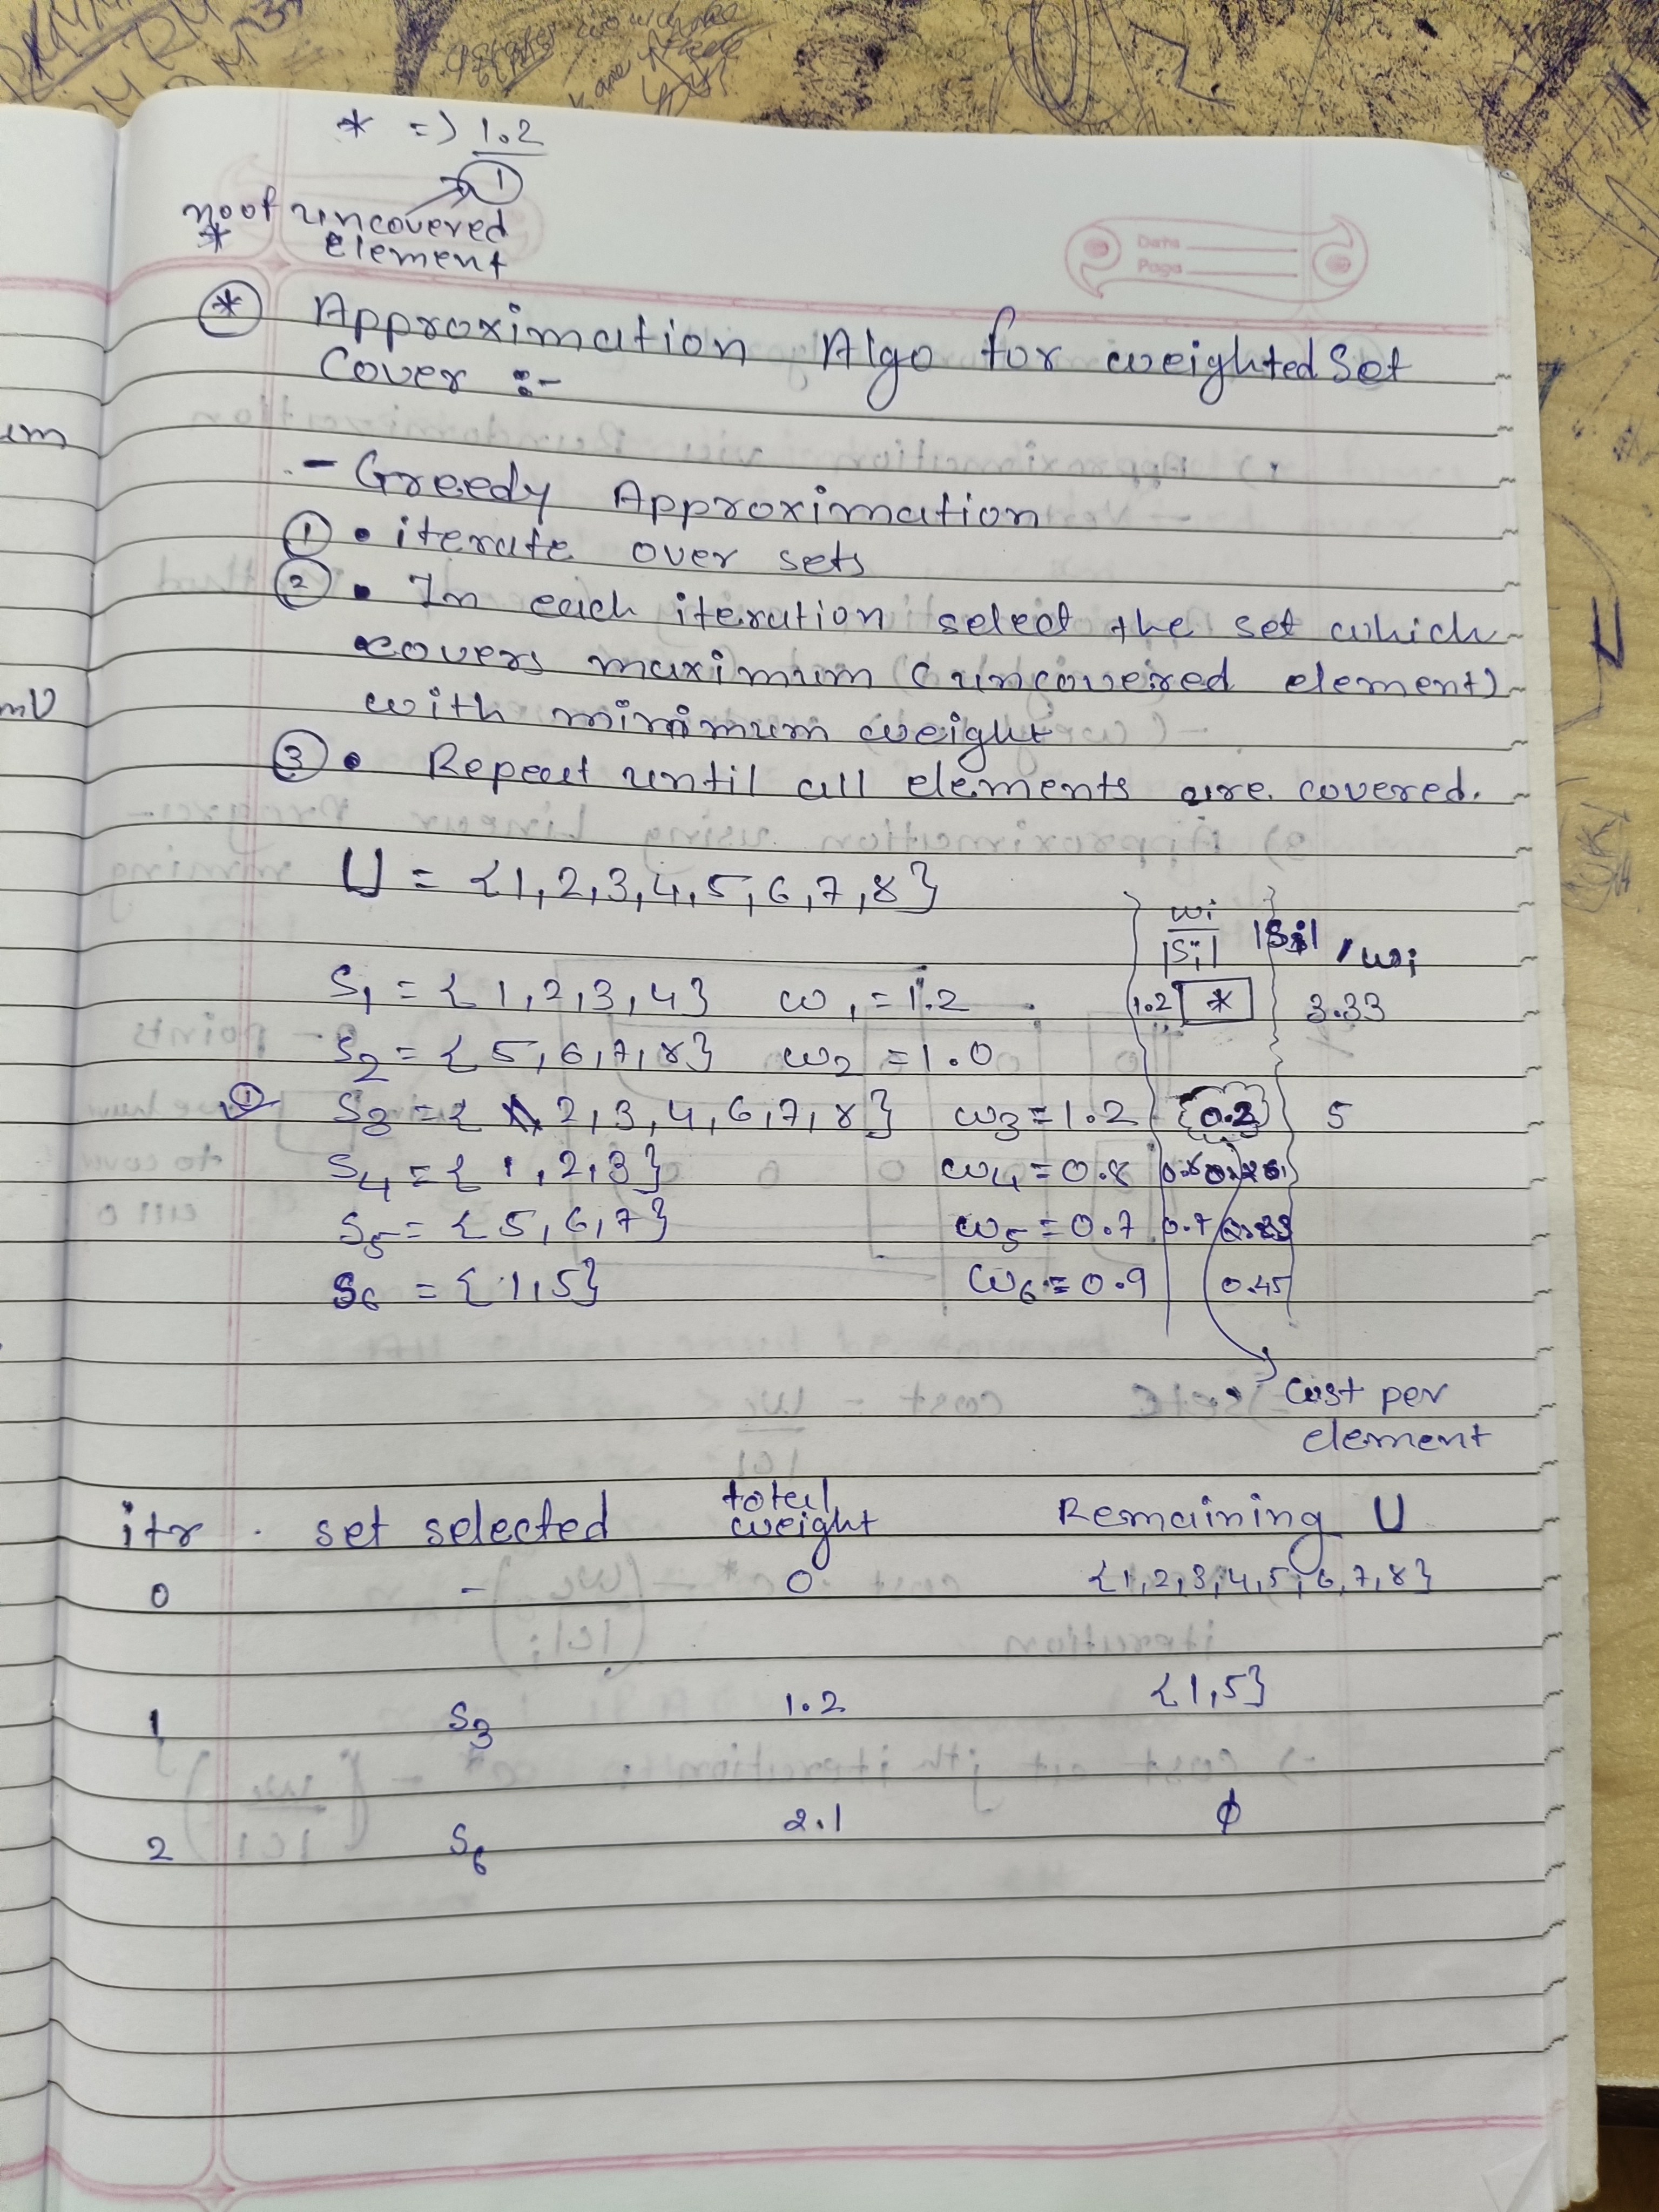 * => 1.2
1
no of uncovered
* element
Date
Page
* Approximation Algo for weighted Set
Cover :-
- Greedy Approximation
1 • iterate over sets
2 • In each iteration select the set which
covers maximum (uncovered element)
with minimum weight
3 • Repeat until all elements are covered.
U = {1,2,3,4,5,6,7,8}
wi
|Si| |Si| / wi
S1 = {1,2,3,4} w1 = 1.2 1.2 * 3.33
S2 = {5,6,7,8} w2 = 1.0
1 S3 = {2,3,4,6,7,8} w3 = 1.2 {0.2} 5
S4 = {1,2,3} w4 = 0.8 0.8
S5 = {5,6,7} w5 = 0.7 0.7
S6 = {1,5} w6 = 0.9 0.45
Cost per
element
itr set selected total weight Remaining U
0 - 0 {1,2,3,4,5,6,7,8}
1 S3 1.2 {1,5}
2 S6 2.1 ϕ